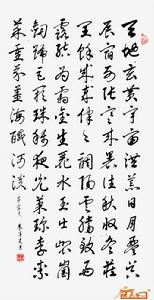 天地玄黃宇宙洪荒日月盈昃
辰宿列張寒來暑往秋收冬藏
閏餘成歲律呂調陽雲騰致雨
露結為霜金生麗水玉出崑岡
劍號巨闕珠稱夜光菓珍李柰
菜重芥薑海鹹河淡
千字文